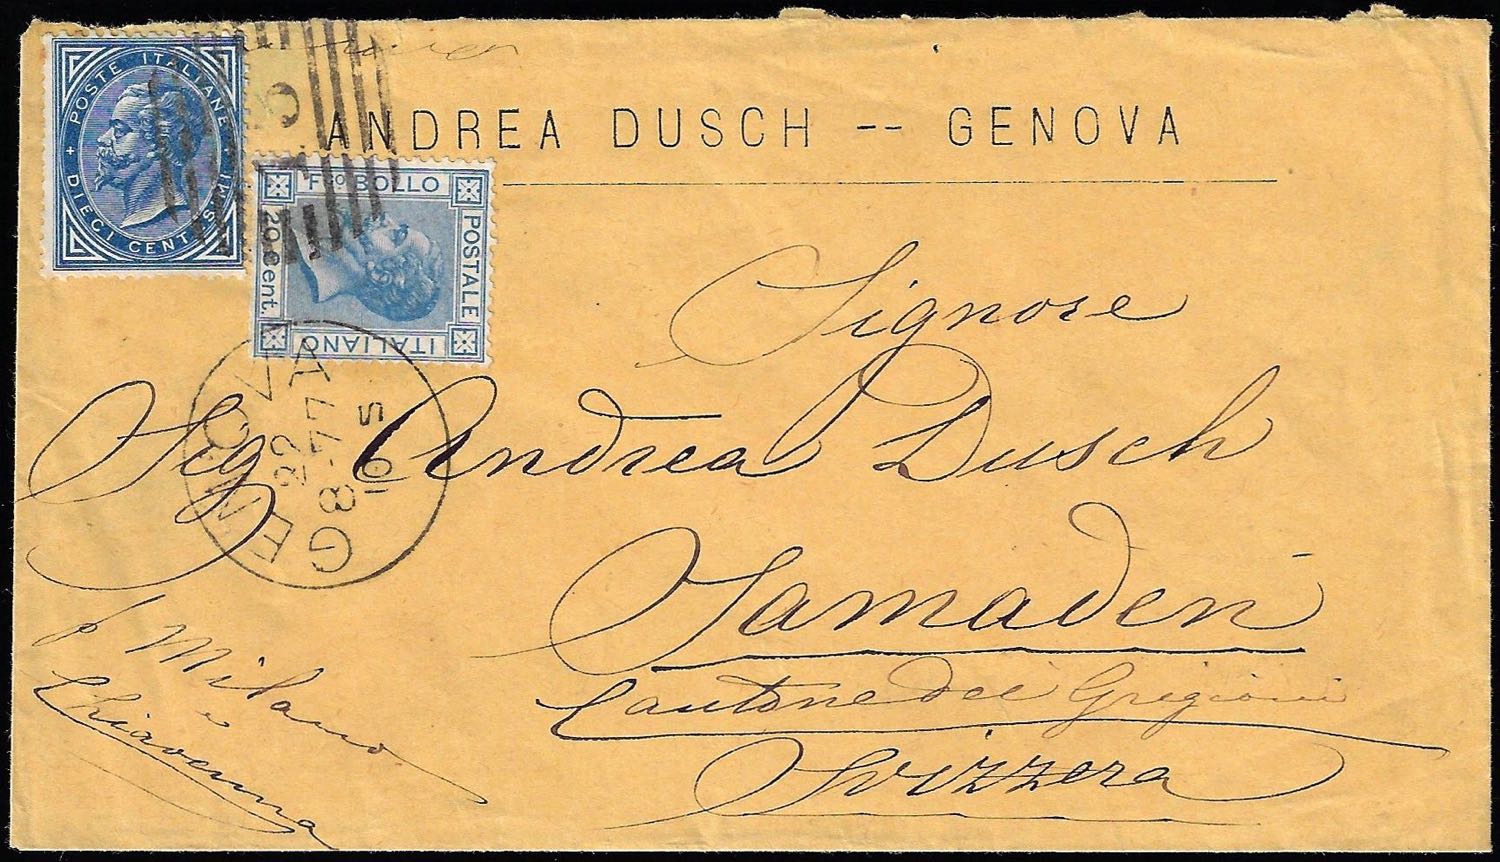 POSTE ITALIANE
DIECI CENTESIMI
5
ANDREA DUSCH -- GENOVA
Fco BOLLO
POSTALE
ITALIANO
20 Cent.
GENOVA
22
8-77
10 S
Signore
Sig Andrea Dusch
Samaden
Cantone dei Grigioni
Svizzera
p Milano
e Chiavenna